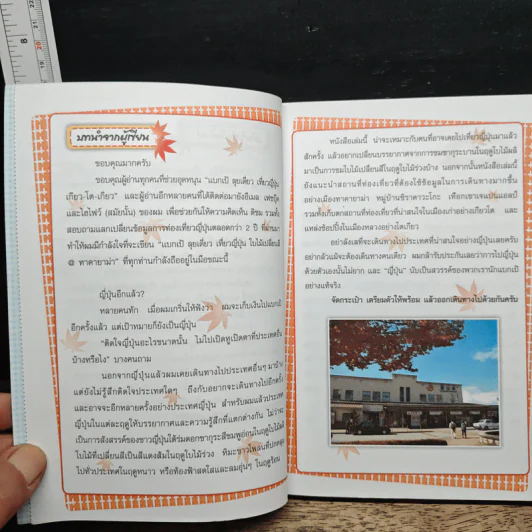 บทนำจากผู้เขียน
ขอบคุณมากครับ
ขอบคุณผู้อ่านทุกคนที่ช่วยอุดหนุน "แบกเป้ ลุยเดี่ยว เที่ยวญี่ปุ่น
เกียว-โต-เกียว" และผู้อ่านอีกหลายคนที่ได้ติดต่อมายังอีเมล เฟซบุ๊ค
และไฮไฟว์ (สมัยนั้น) ของผม เพื่อช่วยกันให้ความคิดเห็น ติชม รวมทั้ง
สอบถามแลกเปลี่ยนข้อมูลการท่องเที่ยวญี่ปุ่นตลอดกว่า 2 ปี ที่ผ่านมา
ทำให้ผมมีกำลังใจที่จะเขียน "แบกเป้ ลุยเดี่ยว เที่ยวญี่ปุ่น ใบไม้เปลี่ยนสี
@ ทาคายาม่า" ที่ทุกท่านกำลังถืออยู่ในมือขณะนี้
ญี่ปุ่นอีกแล้ว?
หลายคนทัก เมื่อผมเกริ่นให้ฟังว่า ผมจะเก็บเงินไปแบกเป้
อีกครั้งแล้ว แต่เป้าหมายก็ยังเป็นญี่ปุ่น
"ติดใจญี่ปุ่นอะไรขนาดนั้น ไม่ไปเปิดหูเปิดตาที่ประเทศอื่น
บ้างหรือไง" บางคนถาม
นอกจากญี่ปุ่นแล้วผมเคยเดินทางไปประเทศอื่นๆ มาบ้าง
แต่ยังไม่รู้สึกติดใจประเทศใดๆ ถึงกับอยากจะเดินทางไปอีกครั้ง
และอาจจะอีกหลายครั้งอย่างประเทศญี่ปุ่น สำหรับผมแล้วประเทศ
ญี่ปุ่นในแต่ละฤดูให้บรรยากาศและความรู้สึกที่แตกต่างกัน ไม่ว่าจะ
เป็นการสังสรรค์ของชาวญี่ปุ่นใต้ร่มดอกซากุระสีชมพูอ่อนในฤดูใบไม้ผลิ
ใบไม้ที่เปลี่ยนสีเป็นสีแดงส้มในฤดูใบไม้ร่วง หิมะขาวโพลนที่ปกคลุม
ไปทั่วประเทศในฤดูหนาว หรือท้องฟ้าสดใสและลมอุ่นๆ ในฤดูร้อน
หนังสือเล่มนี้ น่าจะเหมาะกับคนที่อาจเคยไปเที่ยวญี่ปุ่นมาแล้ว
สักครั้ง แล้วอยากเปลี่ยนบรรยากาศจากการชมซากุระบานในฤดูใบไม้ผลิ
มาเป็นการชมใบไม้เปลี่ยนสีในฤดูใบไม้ร่วงบ้าง นอกจากนั้นหนังสือเล่มนี้
ยังแนะนำสถานที่ท่องเที่ยวที่ต้องใช้ข้อมูลในการเดินทางมากขึ้น
อย่างเมืองทาคายาม่า หมู่บ้านชิราคาวะโกะ เทือกเขาเจแปนแอลป์
รวมทั้งเก็บตกสถานที่เที่ยวที่น่าสนใจในเมืองเก่าอย่างเกียวโต และ
แหล่งช้อปปิ้งในเมืองหลวงอย่างโตเกียว
อย่าลังเลที่จะเดินทางไปประเทศที่น่าสนใจอย่างญี่ปุ่นเลยครับ
อย่ากลัวแม้จะต้องเดินทางคนเดียว ผมกล้ารับประกันเลยว่าการไปญี่ปุ่น
ด้วยตัวเองนั้นไม่ยาก และ "ญี่ปุ่น" นับเป็นสวรรค์ของพวกเรานักแบกเป้
อย่างแท้จริง
จัดกระเป๋า เตรียมตัวให้พร้อม แล้วออกเดินทางไปด้วยกันครับ